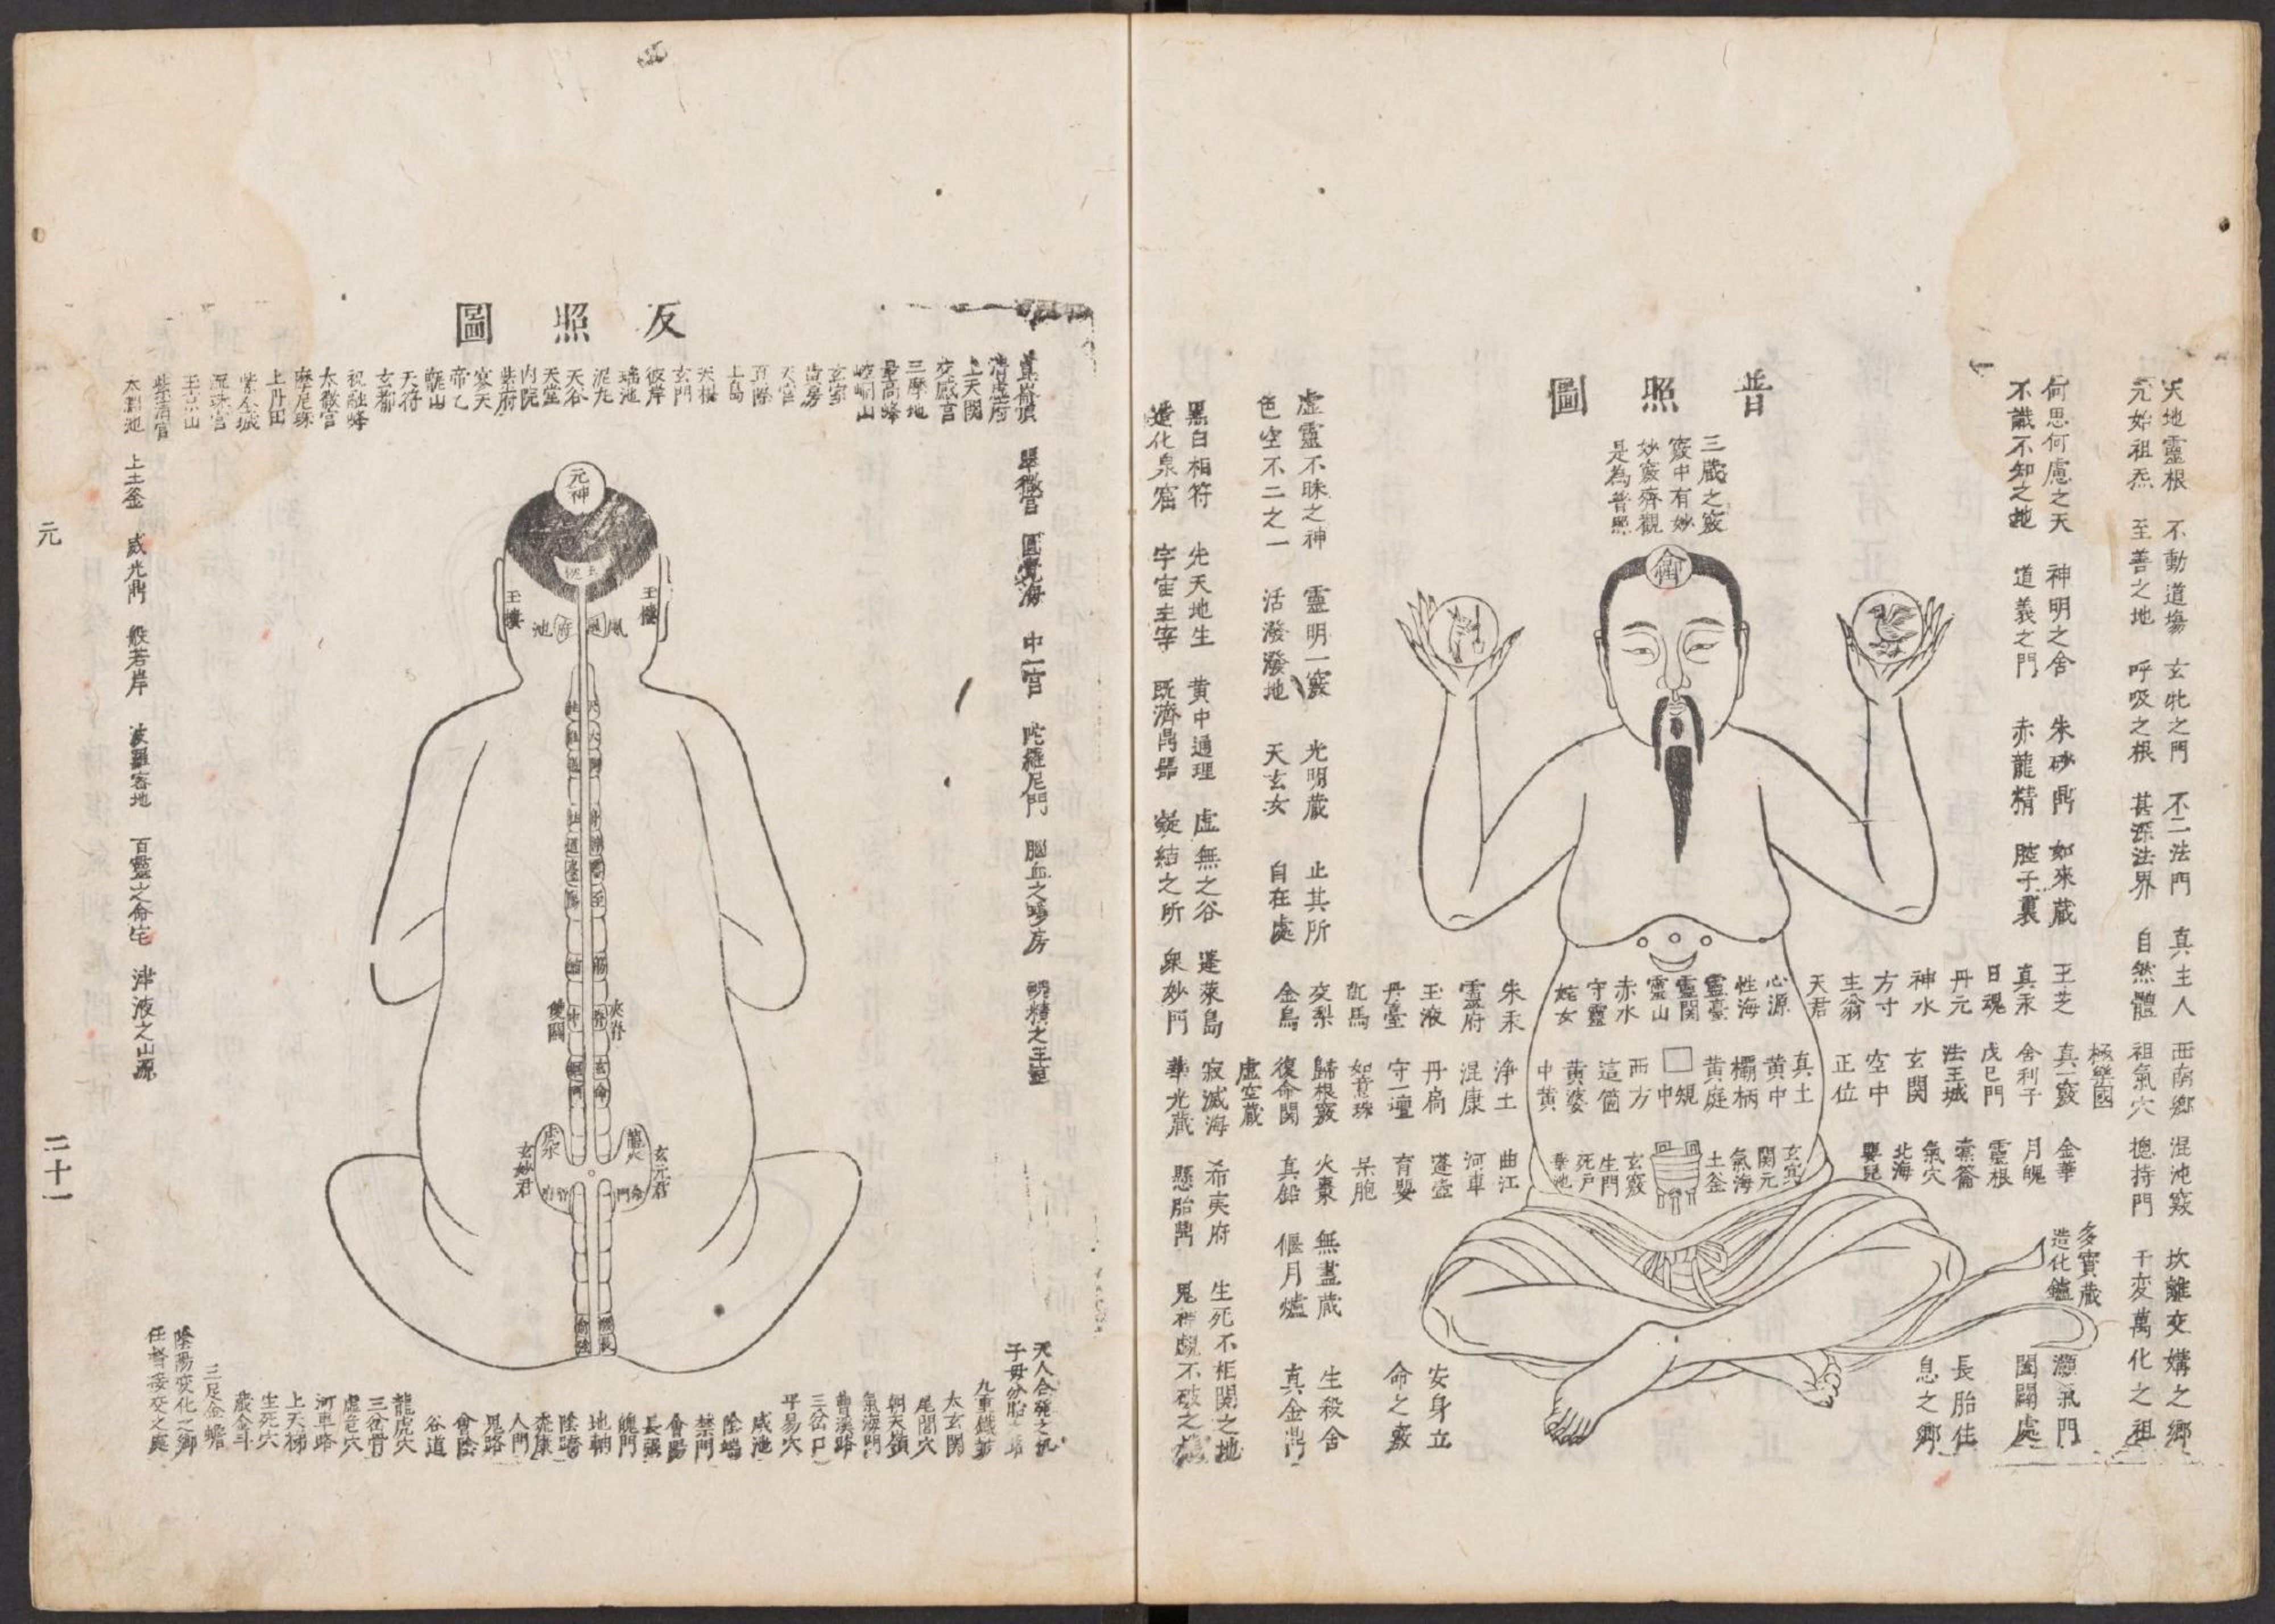 普照圖
三藏之竅
竅中有妙
妙竅齊觀
是為普照
天地靈根 不動道場 玄牝之門 不二法門 真主人 西南鄉 混沌竅 坎離交媾之鄉
元始祖炁 至善之地 呼吸之根 甚深法界 自然體 祖氣穴 摠持門 千変萬化之祖
極樂國
多寶藏
造化鑪
何思何慮之天 神明之舍 朱砂鼎 如來蔵 玉芝 真一竅 金華 灝氣門
不識不知之地 道義之門 赤龍精 腔子裏 真汞 舍利子 月魄 闔闢處
日魂 戊巳門 靈根 長胎住
丹元 法王城 橐籥 息之鄉
神水 玄関 氣穴
方寸 空中 北海
主翁 正位 嬰兒
天君
性海
心源
靈臺
靈関
靈山
赤水
守靈
姹女
真土
黄中
欛柄
黄庭
規
中
西方
這箇
黄婆
中黄
玄宂
関元
氣海
土釜
玄竅
生門
死戶
朱汞 淨土 曲江
靈府 混康 河車
玉液 丹扃 蓬壺
丹臺 守一壇 育嬰
㐌馬 如意珠 呆胞
交梨 歸根竅 火棗 無盡蔵 生殺舍
金烏 復命関 真鉛 偃月爐 真金鼎
安身立
命之竅
虛空蔵
虛靈不昧之神 靈明一竅 光明蔵 止其所
色空不二之一 活潑潑地 天玄女 自在處
黑白相符 先天地生 黄中通理 虛無之谷 蓬萊島 寂滅海 希夷府 生死不相関之地
造化泉窟 宇宙主宰 既濟鼎器 凝結之所 衆妙門 華光蔵 懸胎鼎 鬼神覷不破之機
反照圖
崑崙頂 翠微宮 圓覺海 中一宮 陀羅尼門 腦血之瓊房 魂精之玉室
清虛府
上天関
交感宮
三摩地
最高峰
崆峒山
玄室
黄房
天宮
真際
上島
天根
玄門
彼岸
瑤池
泥丸
天谷
天堂
内院
紫府
寥天
帝乙
甑山
天符
玄都
祝融峰
太微宮
摩尼珠
上丹田
紫金城
流珠宮
玉京山
紫清宮
太淵池 上土釜 威光鼎 般若岸 波羅蜜地 百靈之命宅 津液之山源
元神
玉樓
玉樓
風
池
府
夾脊
雙關
龍火
虎水
玄元君
玄妙君
命門
天人合發之机
子母分胎之路
九重鐵鼓
太玄関
尾閭穴
朝天嶺
氣海門
曹溪路
三岔口
平易穴
咸池
陰端
禁門
會陽
長强
魄門
地軸
陰蹻
桃康
人門
鬼路
會陰
谷道
龍虎穴
三岔骨
虛危穴
河車路
上天梯
生死穴
蔵金斗
三足金蟾
陰陽変化之鄉
任督接交之處
元
二十一